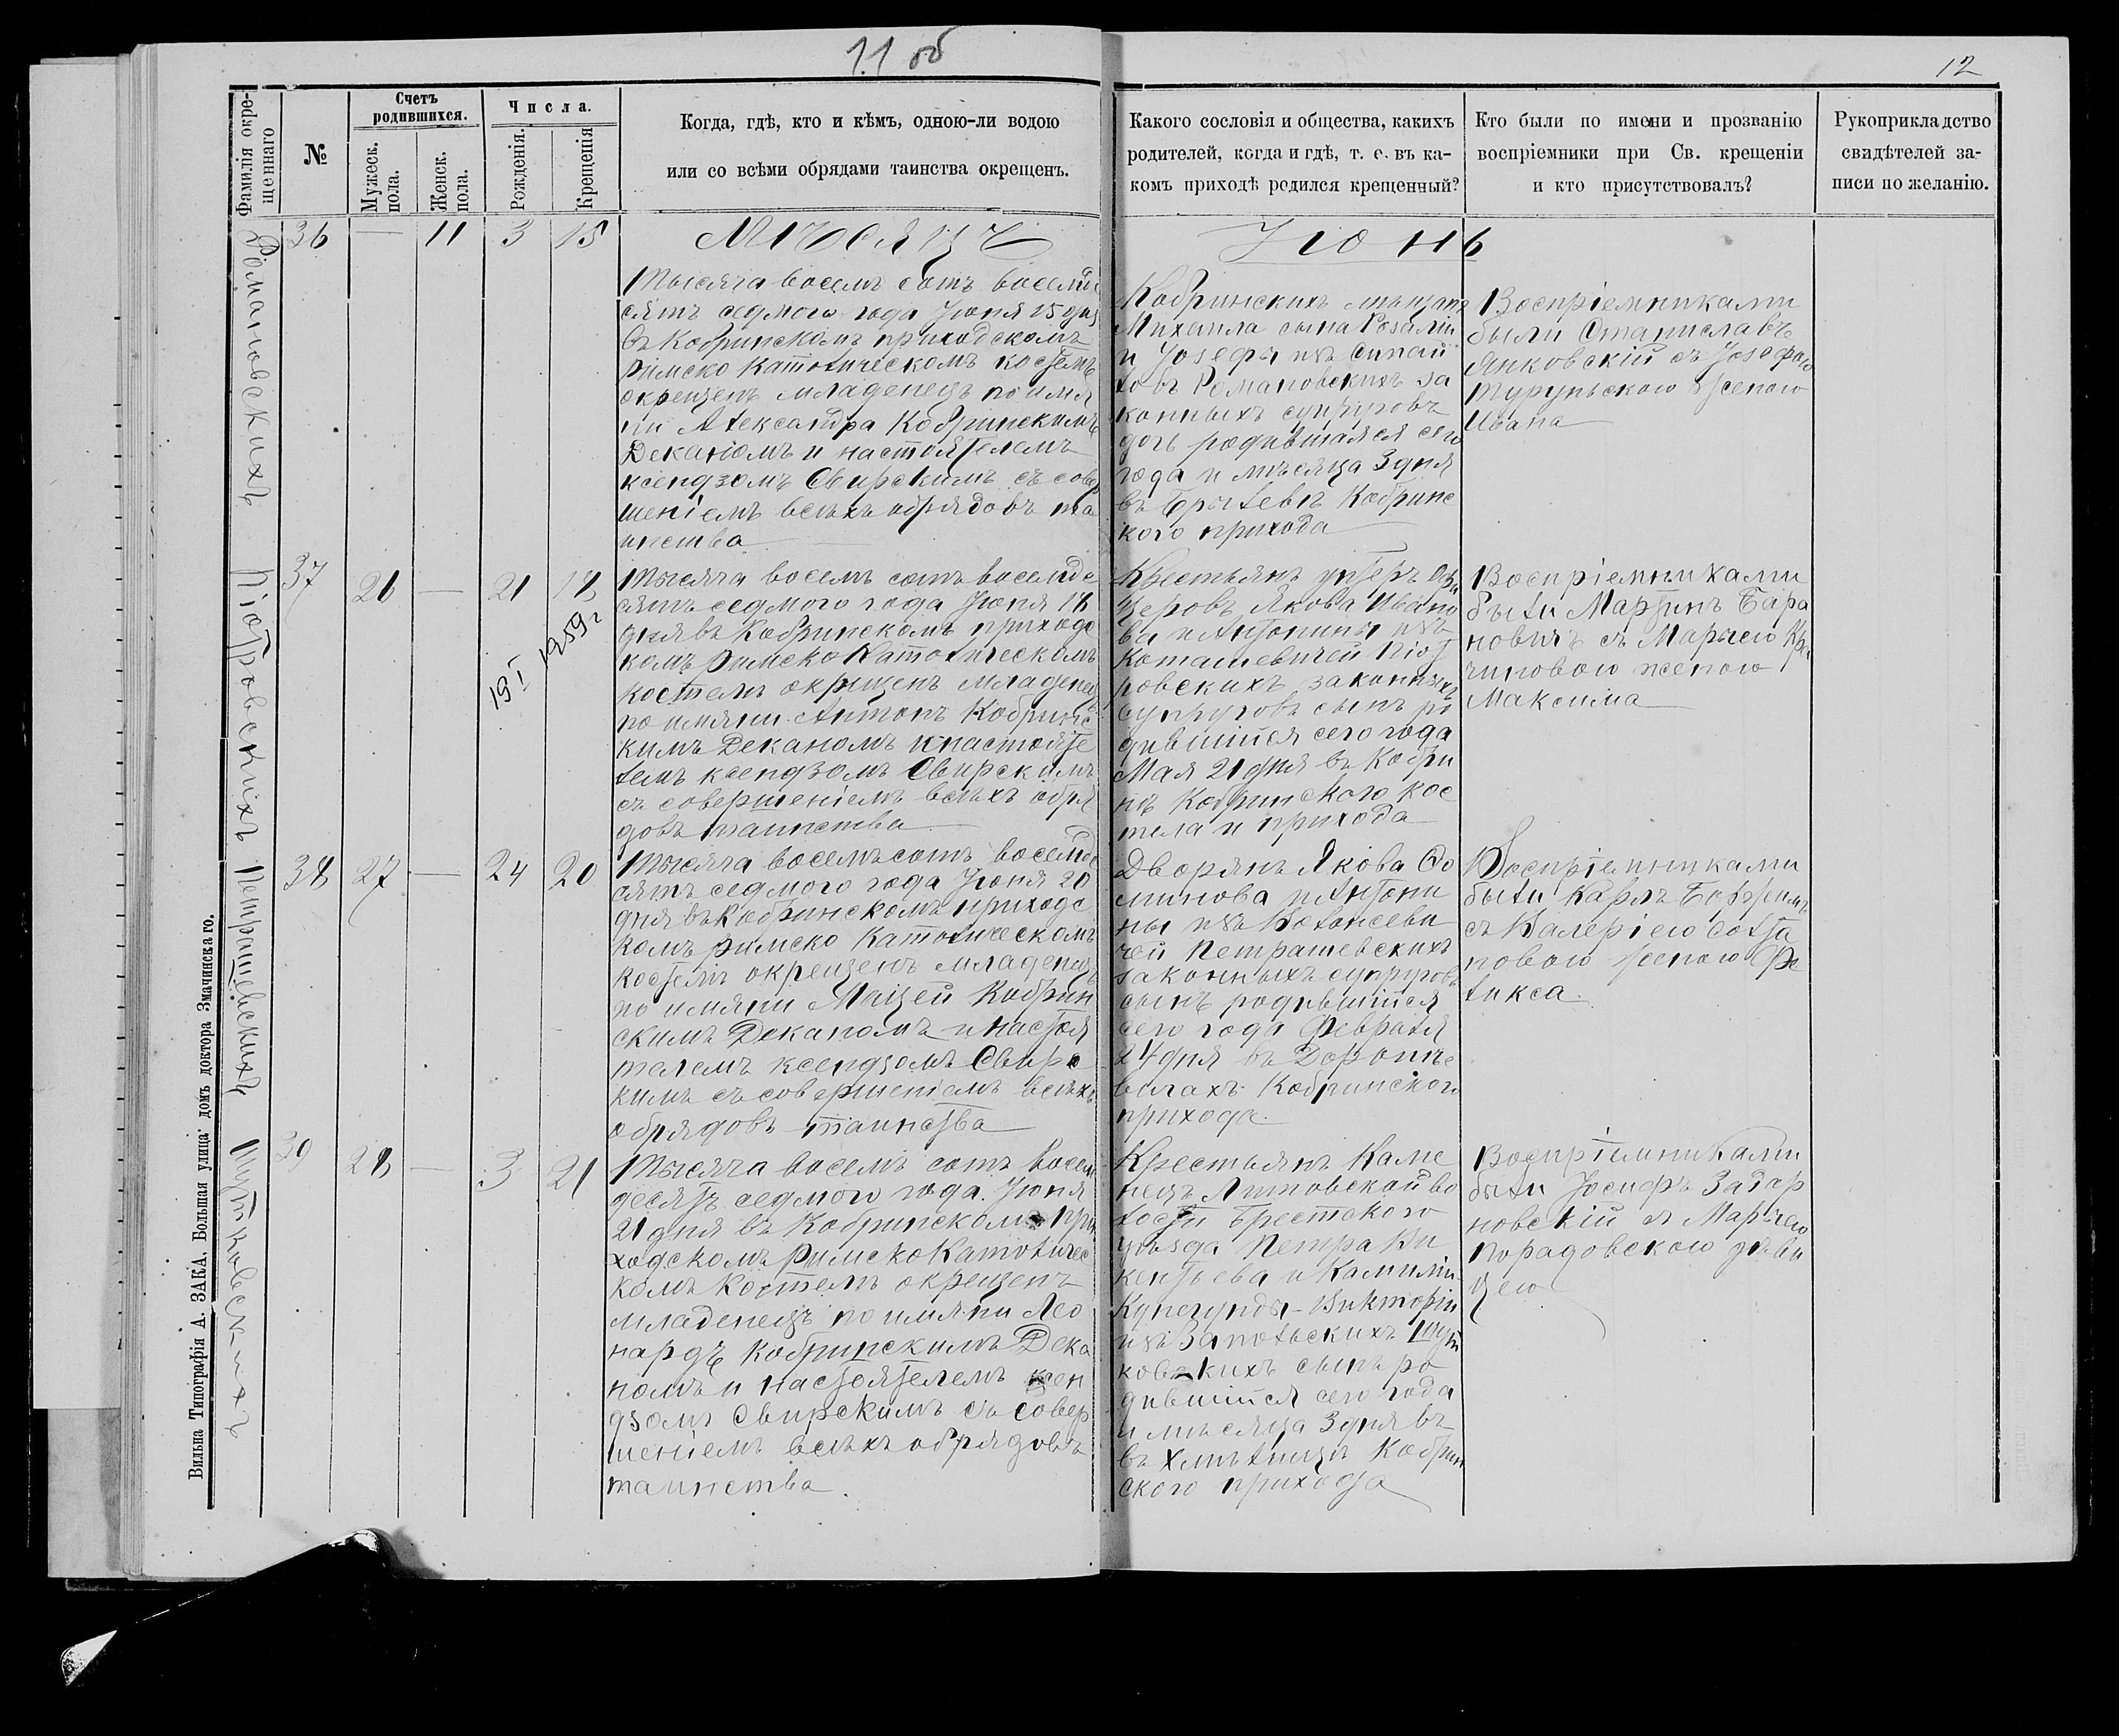 11 об
12
Фамилія окре-
щеннаго
№
Счетъ
родившихся.
Мужеск.
пола.
Женск.
пола.
Числа.
Рожденія.
Крещенія
Когда, гдѣ, кто и кѣмъ, одною-ли водою
или со всѣми обрядами таинства окрещенъ.
Какого сословія и общества, какихъ
родителей, когда и гдѣ, т. е. въ ка-
комъ приходѣ родился крещенный?
Кто были по имени и прозванію
воспріемники при Св. крещеніи
и кто присутствовалъ?
Рукоприкладство
свидѣтелей за-
писи по желанію.
Романовскихъ
36 — 11 3 15
Мѣсяцъ Іюнь
Тысяча восемъ сотъ восемьде
сятъ седмого года Іюня 15 дня
въ Кобринскомъ приходскомъ
Римско Католическомъ костелѣ
окрещенъ младенецъ по имя
ни Александра Кобринскимъ
Деканомъ и настоятелемъ
ксендзомъ Свирскимъ съ совер
шеніемъ всѣхъ обрядовъ та
инства
Кобринскихъ мѣщанъ
Михаила сына Розаліи
и Іозефы изъ
Романовскихъ за
конныхъ супруговъ
дочь родившаяся сего
года и мѣсяца 3 дня
въ Кобринс
кого прихода
Воспріемниками
были Станиславъ
Янковскій съ Іозефою
Турупьскою женою
Ивана
Піотровскихъ
37 26 — 21 18
19 I 1959 г
Тысяча восемъ сотъ восемьде
сятъ седмого года Іюня 18
дня въ Кобринскомъ приходс
комъ Римско Католическомъ
костелѣ окрещенъ младенецъ
по имяни Антонъ Кобринс
кимъ Деканомъ и настояте
лемъ ксендзомъ Свирскимъ
съ совершеніемъ всѣхъ обря
довъ таинства
Крестьянъ унтеръ Офи
церовъ Якова Ивано
ва и Антонины изъ
Коташевичей Піот
ровскихъ законныхъ
супруговъ сынъ ро
дившійся сего года
Мая 21 дня въ Кобри
нѣ Кобринского кос
тела и прихода
Воспріемниками
были Мартинъ Бара
новичъ съ Марыею
женою
Максима
Петрашевскихъ
38 27 — 24 20
Тысяча восемъ сотъ восемьде
сятъ седмого года Іюня 20
дня въ Кобринскомъ приходс
комъ римско Католическомъ
костелѣ окрещенъ младенецъ
по имяни Мацей Кобрин
скимъ Деканомъ и настоя
телемъ ксендзомъ Свирс
кимъ съ совершеніемъ всѣхъ
обрядовъ таинства
Дворянъ Якова Фо
минова и Антони
ны изъ
чей Петрашевскихъ
законныхъ супруговъ
сынъ родившійся
сего года Февраля
24 дня въ
Кобринского
прихода.
Воспріемниками
были Карлъ
съ Валеріею Солта
новою женою Фе
ликса.
Шутковскихъ
39 28 — 3 21
Тысяча восемъ сотъ восемь
десятъ седмого года Іюня
21 дня въ Кобринскомъ при
ходскомъ Римско Католичес
комъ Костелѣ окрещенъ
младенецъ по имяни Лео
нардъ Кобринскимъ Дека
номъ и настоятелемъ ксен
дзомъ Свирскимъ съ совер
шеніемъ всѣхъ обрядовъ
таинства.
Крестьянъ Каме
нецъ Литовской во
лости Брестского
уѣзда Петра Ви
кентьева и Камиліи
Кунегунды-Викторіи
изъ Запольскихъ Шут
ковскихъ сынъ ро
дившійся сего года
и мѣсяца 3 дня въ
въ Кобрин
ского прихода
Воспріемниками
были Іосифъ
новскій съ Марыею
Порадовскою дѣви
цею
Вильна Типографія А. ЗАКА. Большая улица домъ доктора Змачинскаго.